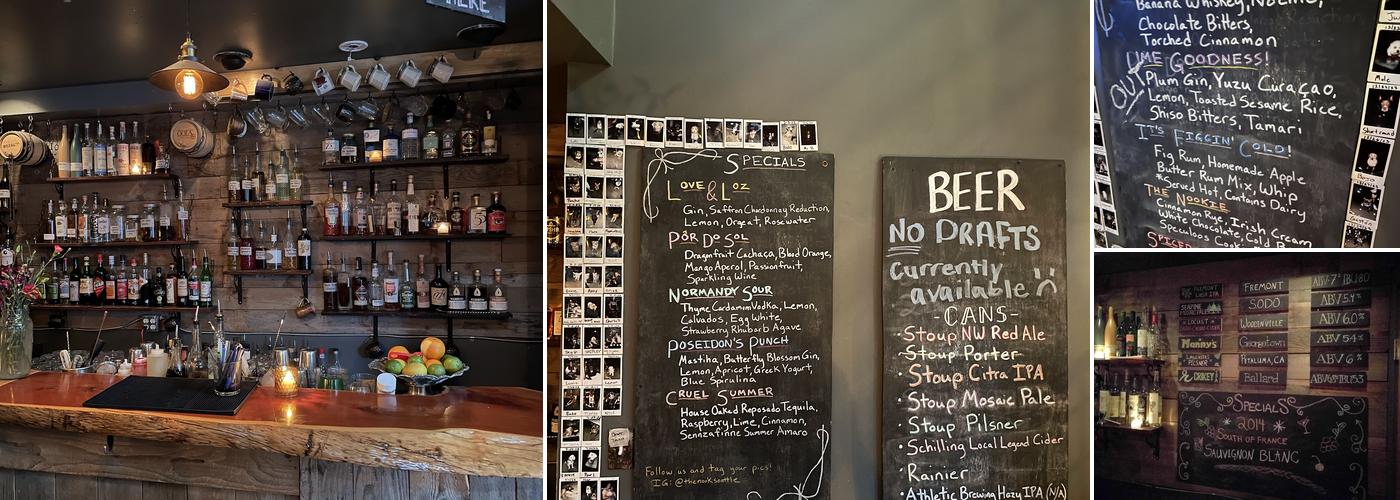 HERE
SPECIALS
LOVE & LOZ
Gin, Saffron Chardonnay Reduction,
Lemon, Orgeat, Rosewater
PÔR DO SOL
Dragonfruit Cachaça, Blood Orange,
Mango Aperol, Passionfruit,
Sparkling Wine
NORMANDY SOUR
Thyme Cardamom Vodka, Lemon,
Calvados, Egg White,
Strawberry Rhubarb Agave
POSEIDON'S PUNCH
Mastiha, Butterfly Blossom Gin,
Lemon, Apricot, Greek Yogurt,
Blue Spirulina
CRUEL SUMMER
House Oaked Reposado Tequila,
Raspberry, Lime, Cinnamon,
Sennzafinne Summer Amaro
Follow us and tag your pics!
IG: @thenookseattle
BEER
NO DRAFTS
Currently
available
-CANS-
• Stoup NW Red Ale
• Stoup Porter
• Stoup Citra IPA
• Stoup Mosaic Pale
• Stoup Pilsner
• Schilling Local Legend Cider
• Rainier
• Athletic Brewing Hazy IPA (N/A)
Banana Whiskey, Nocino,
Chocolate Bitters,
Torched Cinnamon
UME GOODNESS!
OUT
Plum Gin, Yuzu Curaçao,
Lemon, Toasted Sesame Rice,
Shiso Bitters, Tamari
IT'S FIGGIN' COLD!
Fig Rum, Homemade Apple
Butter Rum Mix, Whip
*Served Hot, Contains Dairy
THE NOOKIE
Cinnamon Rye, Irish Cream
White Chocolate, Cold B
Speculoos Cook
SPICED
FREMONT
SODO
ABV 5.4%
WOODINVILLE
ABV 6.0%
Manny's
Georgetown
ABV 5.4%
PETALUMA, CA
ABV 6%
Ballard
SPECIALS
2014
SOUTH OF FRANCE
SAUVIGNON BLANC